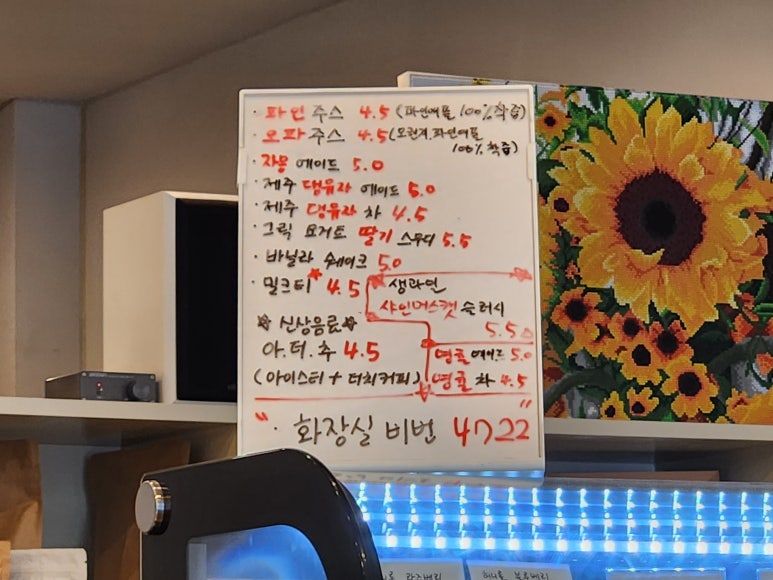 · 파인 주스 4.5 (파인애플 100% 착즙)
· 오파 주스 4.5 (오렌지, 파인애플 100% 착즙)
· 자몽 에이드 5.0
· 제주 댕유자 에이드 5.0
· 제주 댕유자 차 4.5
· 그릭 요거트 딸기 스무디 5.5
· 바닐라 쉐이크 5.0
· 밀크티 4.5
생라임
샤인머스켓 슬러시
5.5
☆ 신상음료 ☆
아.더.추 4.5
(아이스티 + 더치커피)
영귤 에이드 5.0
영귤 차 4.5
" · 화장실 비번 4722 "